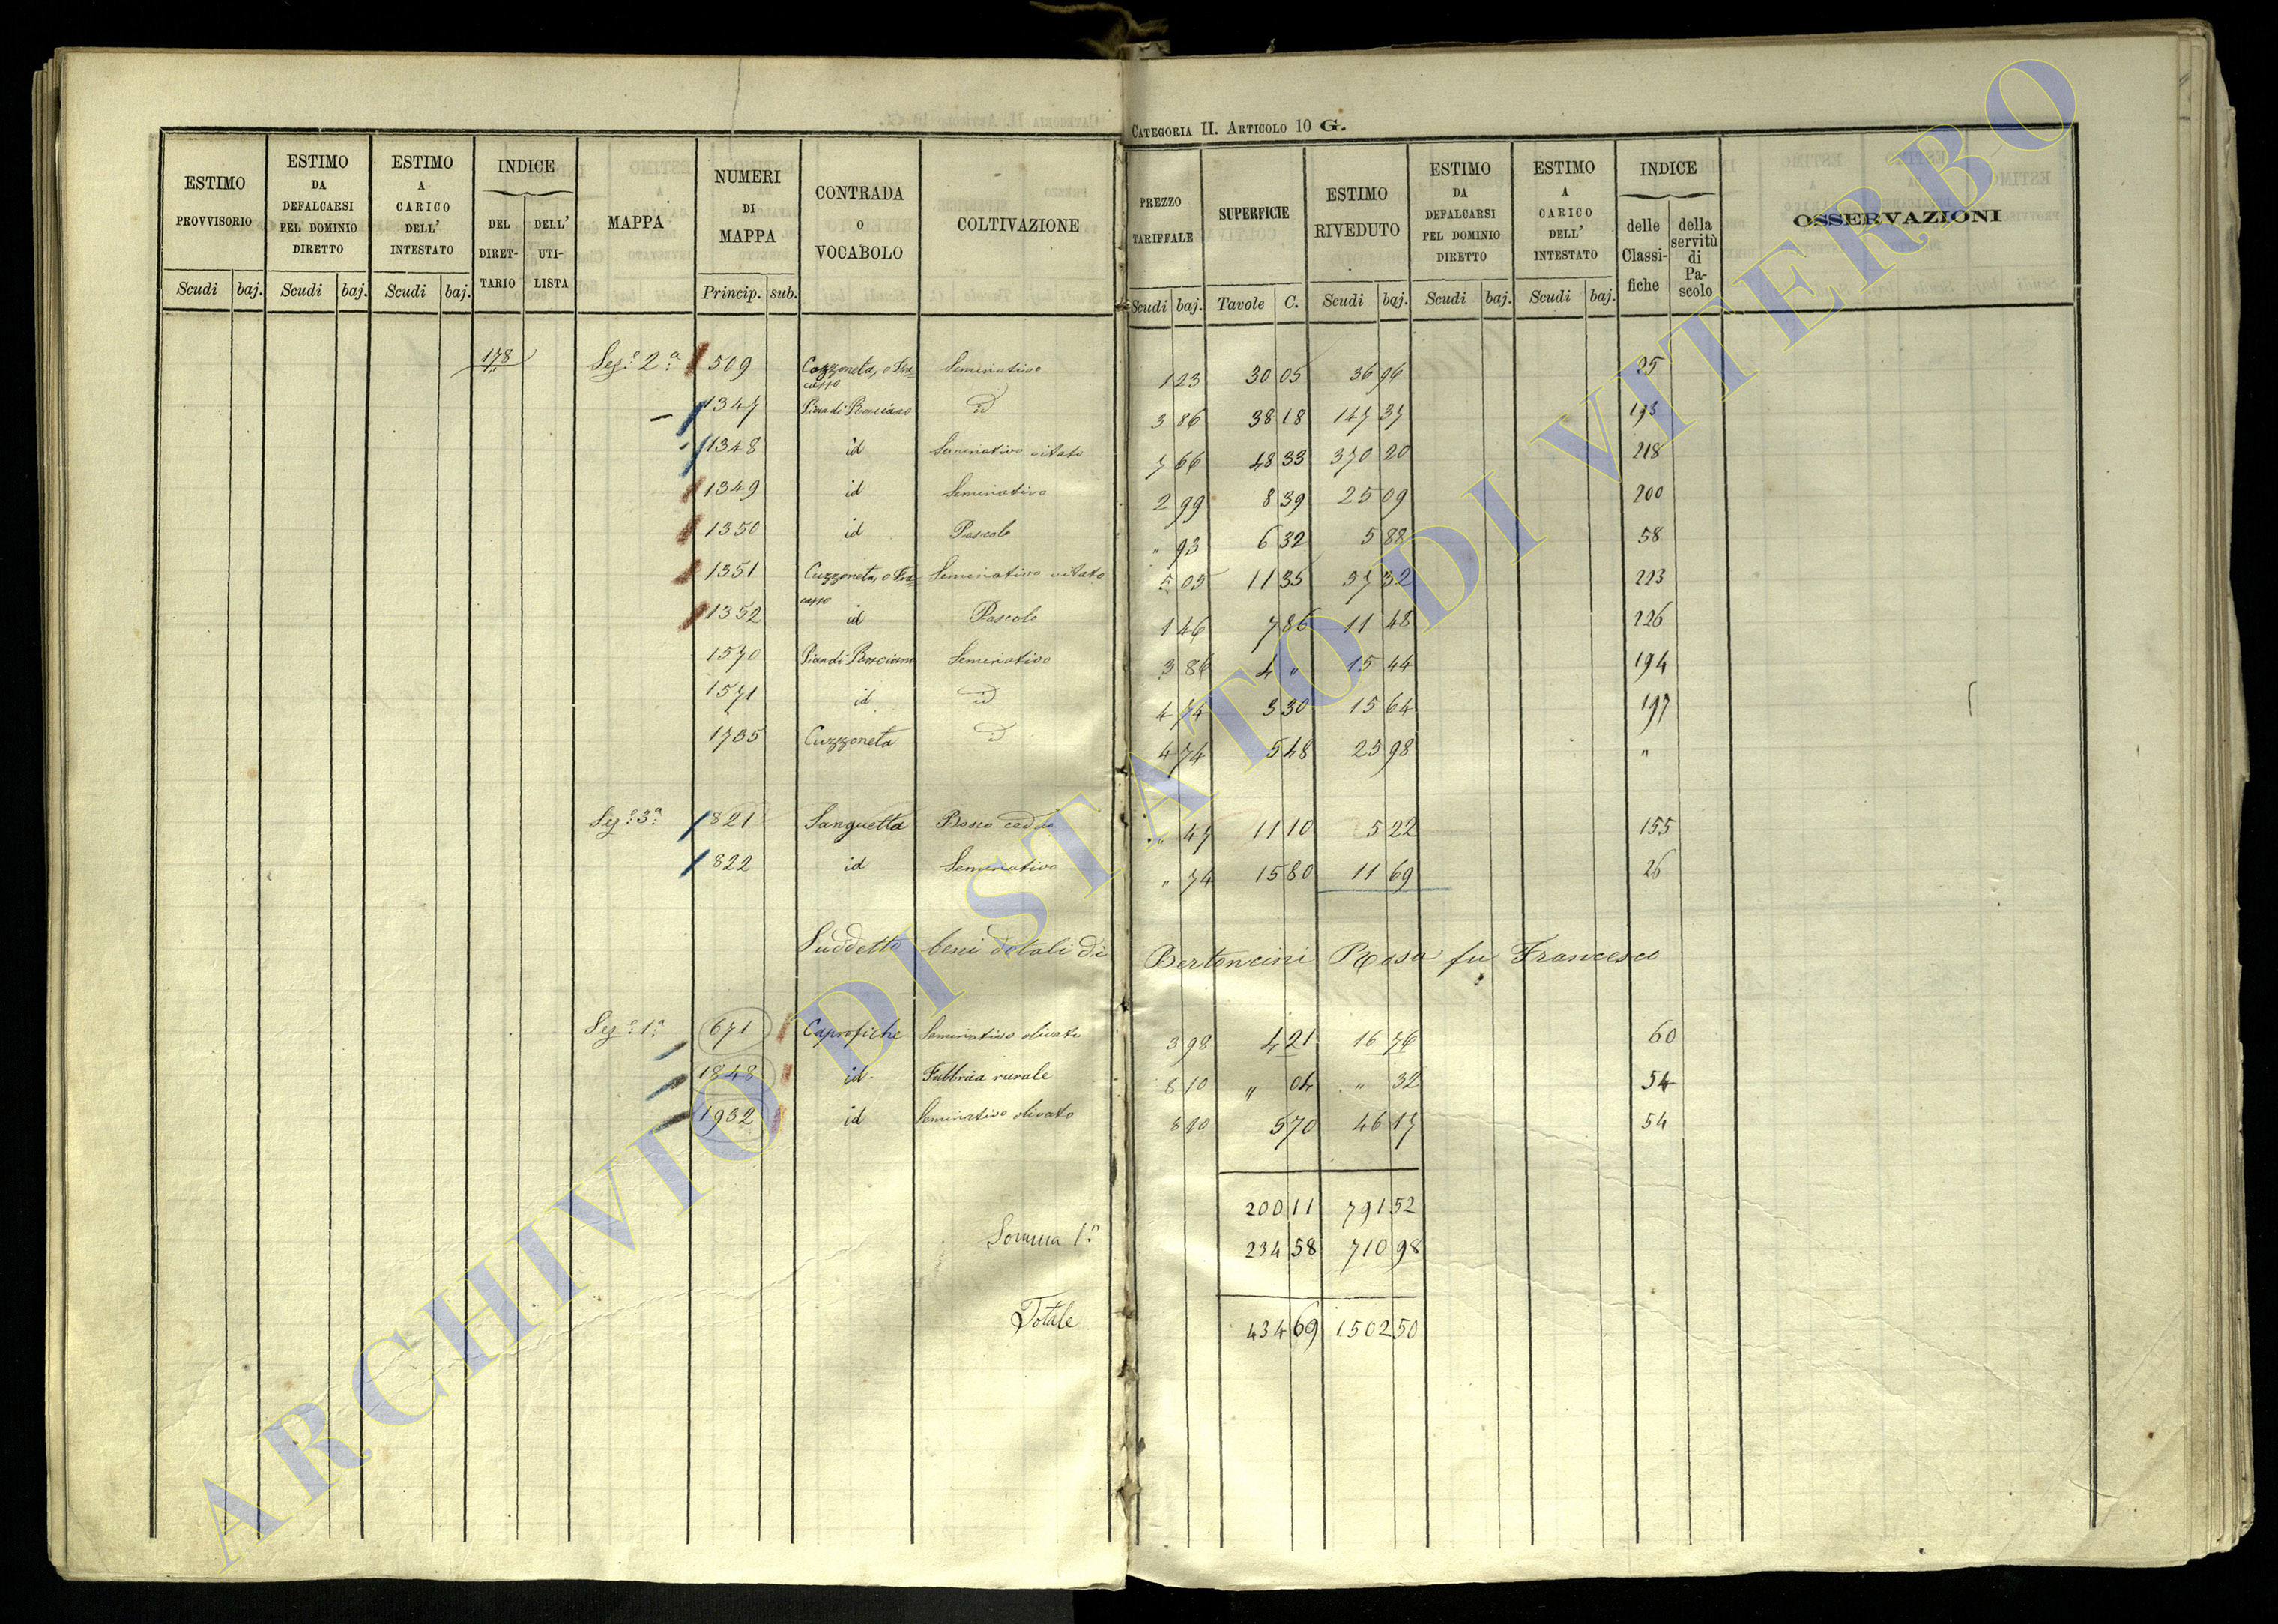 CATEGORIA II. ARTICOLO 10 G.
ESTIMO PROVVISORIO | ESTIMO DA DEFALCARSI PEL DOMINIO DIRETTO | ESTIMO A CARICO DELL' INTESTATO | INDICE DEL DIRETTARIO | DELL' UTILISTA | MAPPA | NUMERI DI MAPPA | CONTRADA O VOCABOLO | COLTIVAZIONE | PREZZO TARIFFALE | SUPERFICIE | ESTIMO RIVEDUTO | ESTIMO DA DEFALCARSI PEL DOMINIO DIRETTO | ESTIMO A CARICO DELL' INTESTATO | INDICE delle Classifiche | della servitù di Pascolo | OSSERVAZIONI
Scudi | baj. | Scudi | baj. | Scudi | baj. | Princip. | sub. | Scudi | baj. | Tavole | C. | Scudi | baj. | Scudi | baj. | Scudi | baj.
178 Seze 2a 509 Seminativo 1 23 30 05 36 96
1347 Pian di Bosciano id 3 86 38 18 147 37 193
1348 id Seminativo vitato 7 66 48 33 370 20 218
1349 id Seminativo 2 99 8 39 25 09 200
1350 id Pascolo " 93 6 32 5 88 58
1351 Cuzzoneta, o Fracasso Seminativo vitato 5 05 11 35 57 32 223
1352 id Pascolo 1 46 7 86 11 48 226
1570 Pian di Bosciano Seminativo 3 86 4 " 15 44 194
1571 id id 4 74 3 30 15 64 197
1735 Cuzzoneta id 4 74 5 48 25 98 "
Seze 3a 821 Sanguetta Bosco ceduo " 47 11 10 5 22 155
822 id Seminativo " 74 15 80 11 69 26
Suddetto beni dotali di Bertoncini Rosa fu Francesco
Seze 1a 671 Caprofiche Seminativo olivato 3 98 4 21 16 76 60
1848 id Fabbrica rurale 8 10 " 04 " 32 54
1932 id Seminativo olivato 8 10 5 70 46 17 54
200 11 791 52
Somma 1a 234 58 710 98
Totale 434 69 1502 50
ARCHIVIO DI STATO DI VITERBO